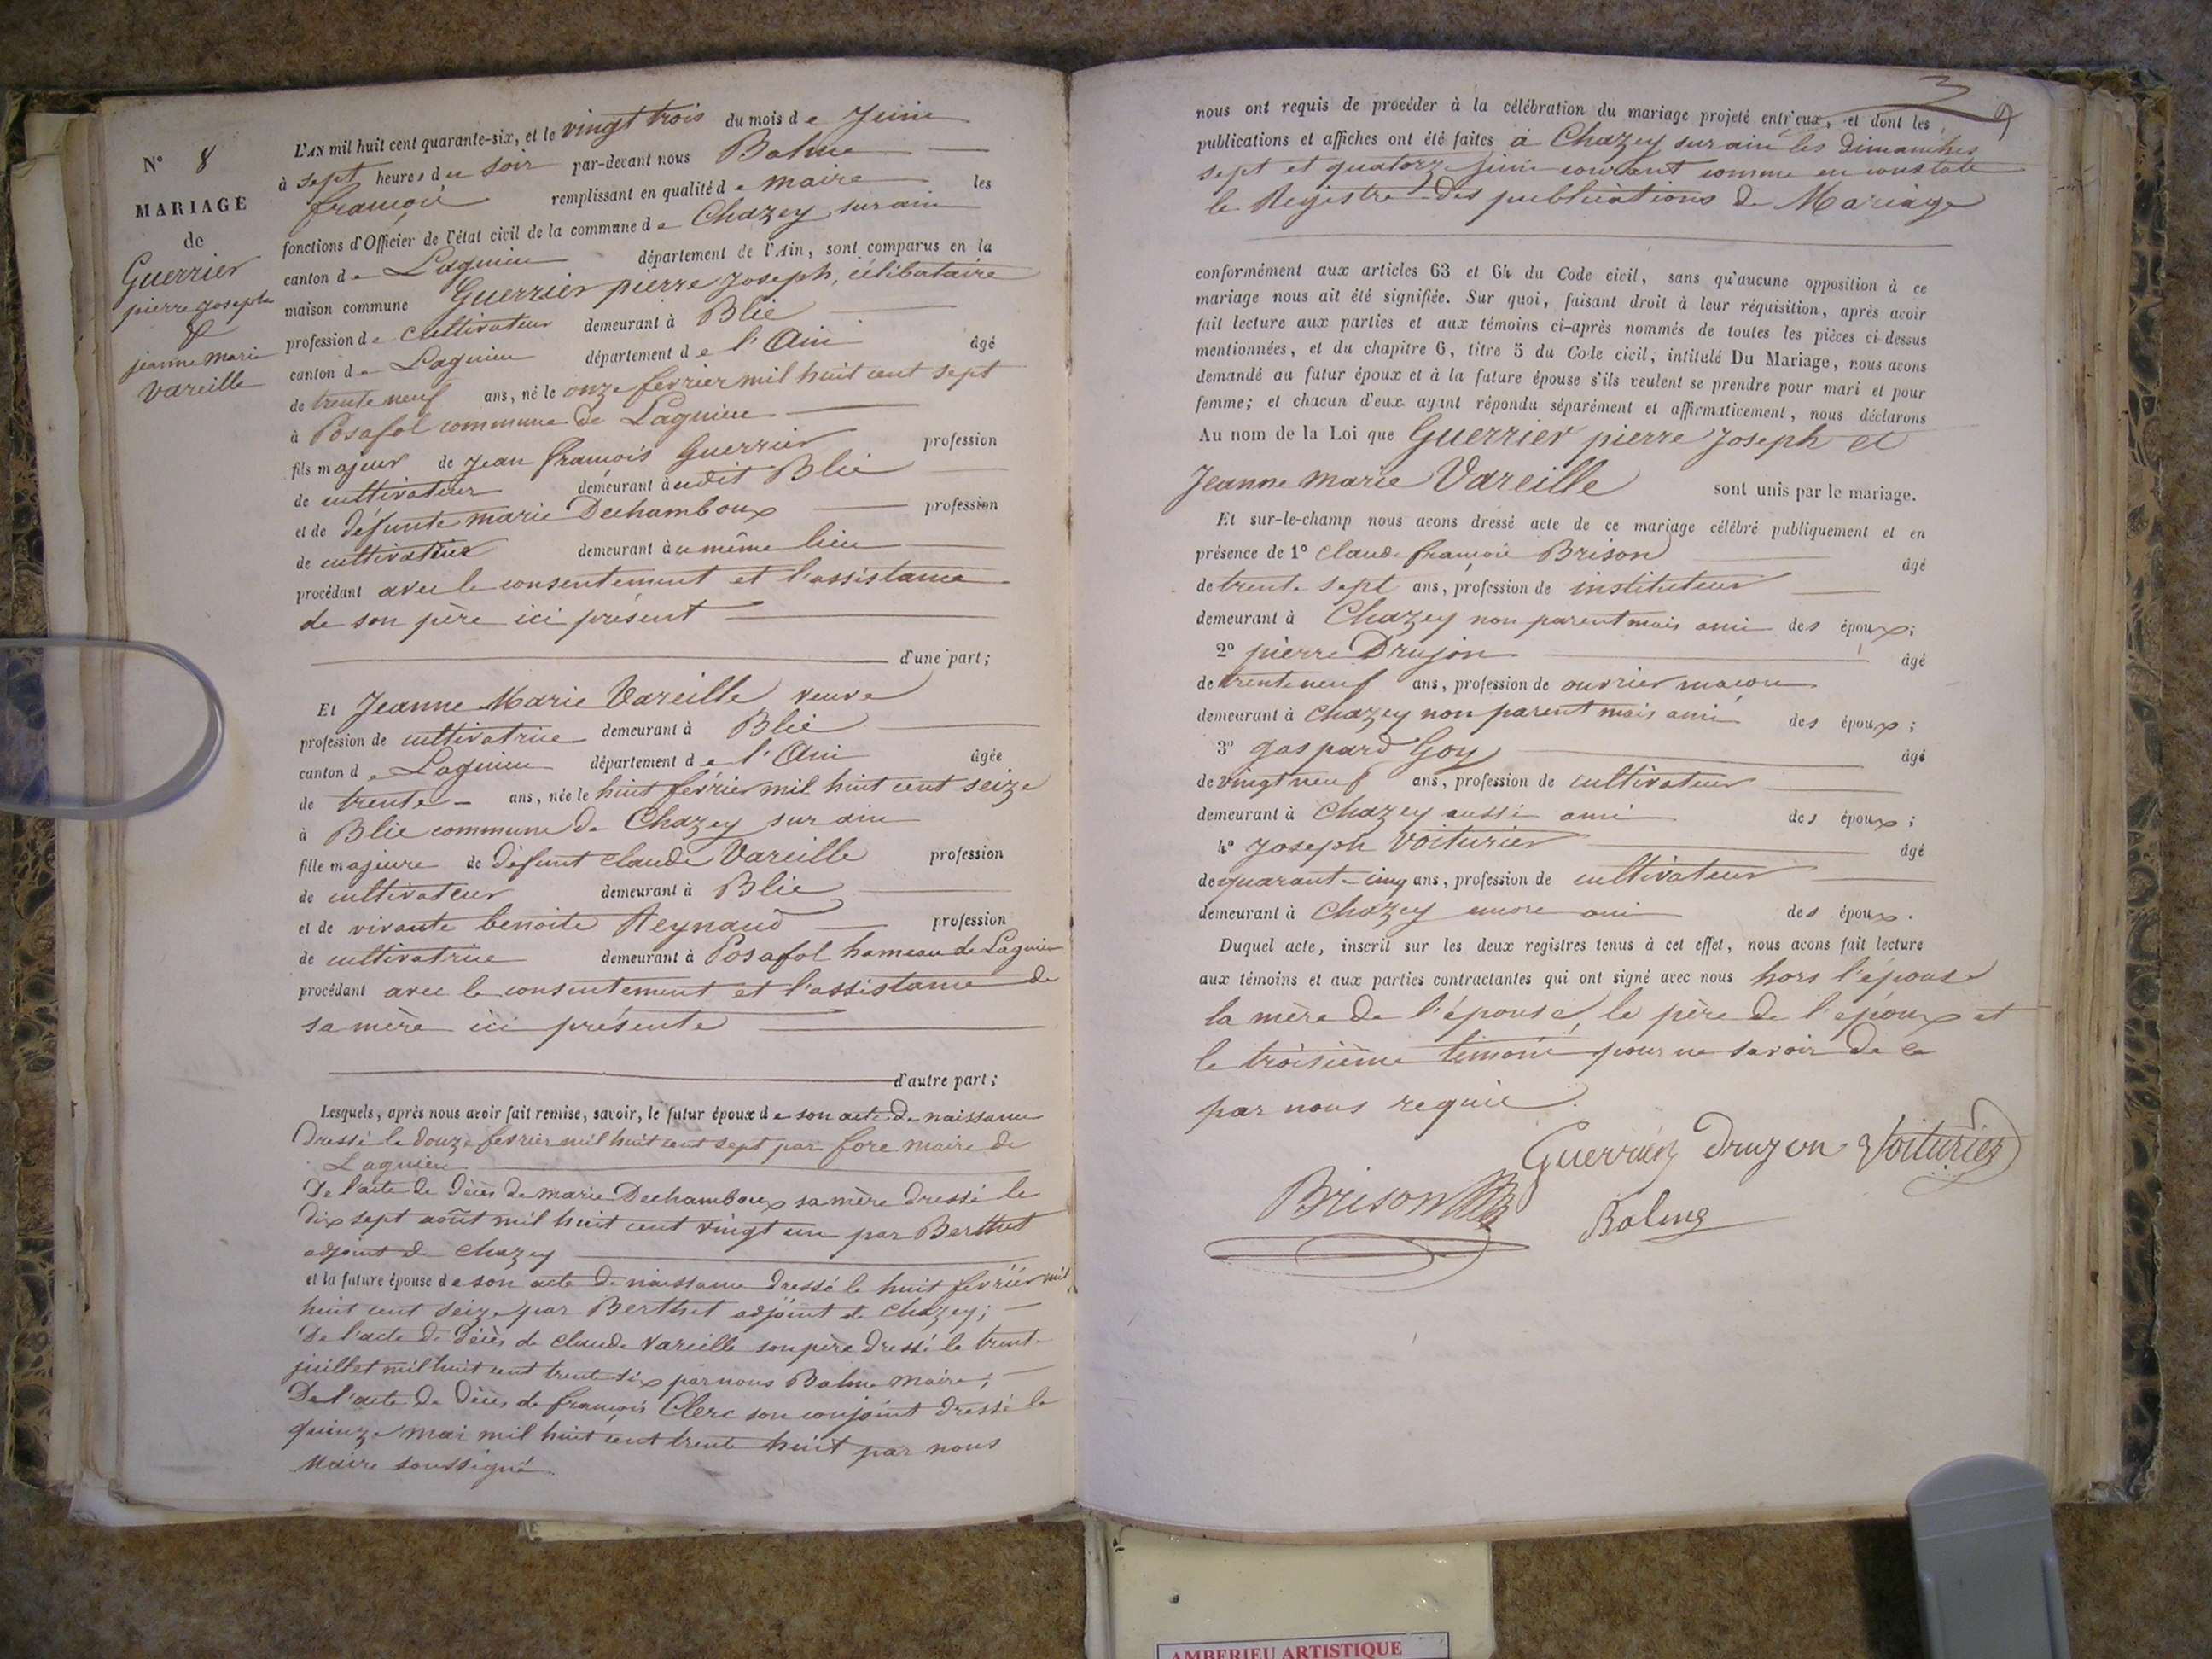 N° 8
MARIAGE
de
Guerrier
pierre joseph
&
jeanne marie
Vareille
L'AN mil huit cent quarante-six, et le vingt trois du mois de Juin
à sept heures du soir par-devant nous Balme
françois remplissant en qualité de maire les
fonctions d'Officier de l'état civil de la commune de Chazey sur ain
canton de Lagnieu département de l'Ain, sont comparus en la
maison commune Guerrier pierre Joseph, célibataire
profession de cultivateur demeurant à Blie
canton de Lagnieu département de l'Ain âgé
de trente neuf ans, né le onze fevrier mil huit cent sept
à Posafol commune de Lagnieu
fils majeur de Jean françois Guerrier profession
de cultivateur demeurant à udit Blie
et de défunte marie Dechamboux profession
de cultivatrice demeurant à u même lieu
procédant avec le consentement et l'assistance
de son père ici présent
d'une part;
Et Jeanne Marie Vareille veuve
profession de cultivatrice demeurant à Blie
canton de Lagnieu département de l'Ain âgée
de trente ans, née le huit février mil huit cent seize
à Blie commune de Chazey sur ain
fille majeure de défunt claude Vareille profession
de cultivateur demeurant à Blie
et de vivante benoite Reynaud profession
de cultivatrice demeurant à Posafol hameau de Lagnieu
procédant avec le consentement et l'assistance de
sa mère ici présente
d'autre part;
Lesquels, après nous avoir fait remise, savoir, le futur époux de son acte de naissance
dressé le douze fevrier mil huit cent sept par fore maire de
Lagnieu
De l'acte de décès de marie Dechamboux sa mère dressé le
dix sept août mil huit cent vingt un par Berthet
adjoint de chazey
et la future épouse de son acte de naissance dressé le huit février mil
huit cent seize par Berthet adjoint de Chazey;
De l'acte de décès de claude Vareille son père dressé le trente
juillet mil huit cent trente six par nous Balme maire;
De l'acte de décès de françois Clerc son conjoint dressé le
quinze mai mil huit cent trente huit par nous
Maire soussigné.
nous ont requis de procéder à la célébration du mariage projeté entr'eux, et dont les
publications et affiches ont été faites à Chazey sur ain les dimanches
sept et quatorze juin courant comme en constate
le Registre des publications de Mariage
conformément aux articles 63 et 64 du Code civil, sans qu'aucune opposition à ce
mariage nous ait été signifiée. Sur quoi, faisant droit à leur réquisition, après avoir
fait lecture aux parties et aux témoins ci-après nommés de toutes les pièces ci-dessus
mentionnées, et du chapitre 6, titre 5 du Code civil, intitulé Du Mariage, nous avons
demandé au futur époux et à la future épouse s'ils veulent se prendre pour mari et pour
femme; et chacun d'eux ayant répondu séparément et affirmativement, nous déclarons
Au nom de la Loi que Guerrier pierre Joseph et
Jeanne marie Vareille sont unis par le mariage.
Et sur-le-champ nous avons dressé acte de ce mariage célébré publiquement et en
présence de 1° claude françois Brison âgé
de trente sept ans, profession de instituteur
demeurant à Chazey non parent mais ami des époux;
2° pierre Drujon âgé
de trente neuf ans, profession de ouvrier maçon
demeurant à Chazey non parent mais ami des époux;
3° gaspard Goy âgé
de vingt neuf ans, profession de cultivateur
demeurant à Chazey aussi ami des époux;
4° Joseph Voiturier âgé
de quarante cinq ans, profession de cultivateur
demeurant à Chazey encore ami des époux.
Duquel acte, inscrit sur les deux registres tenus à cet effet, nous avons fait lecture
aux témoins et aux parties contractantes qui ont signé avec nous hors l'épouse
la mère de l'épouse, le père de l'époux et
le troisième témoin pour ne savoir de ce
par nous requis.
Guerrier Drujon Voiturier
Brison Balme
AMBERIEU ARTISTIQUE